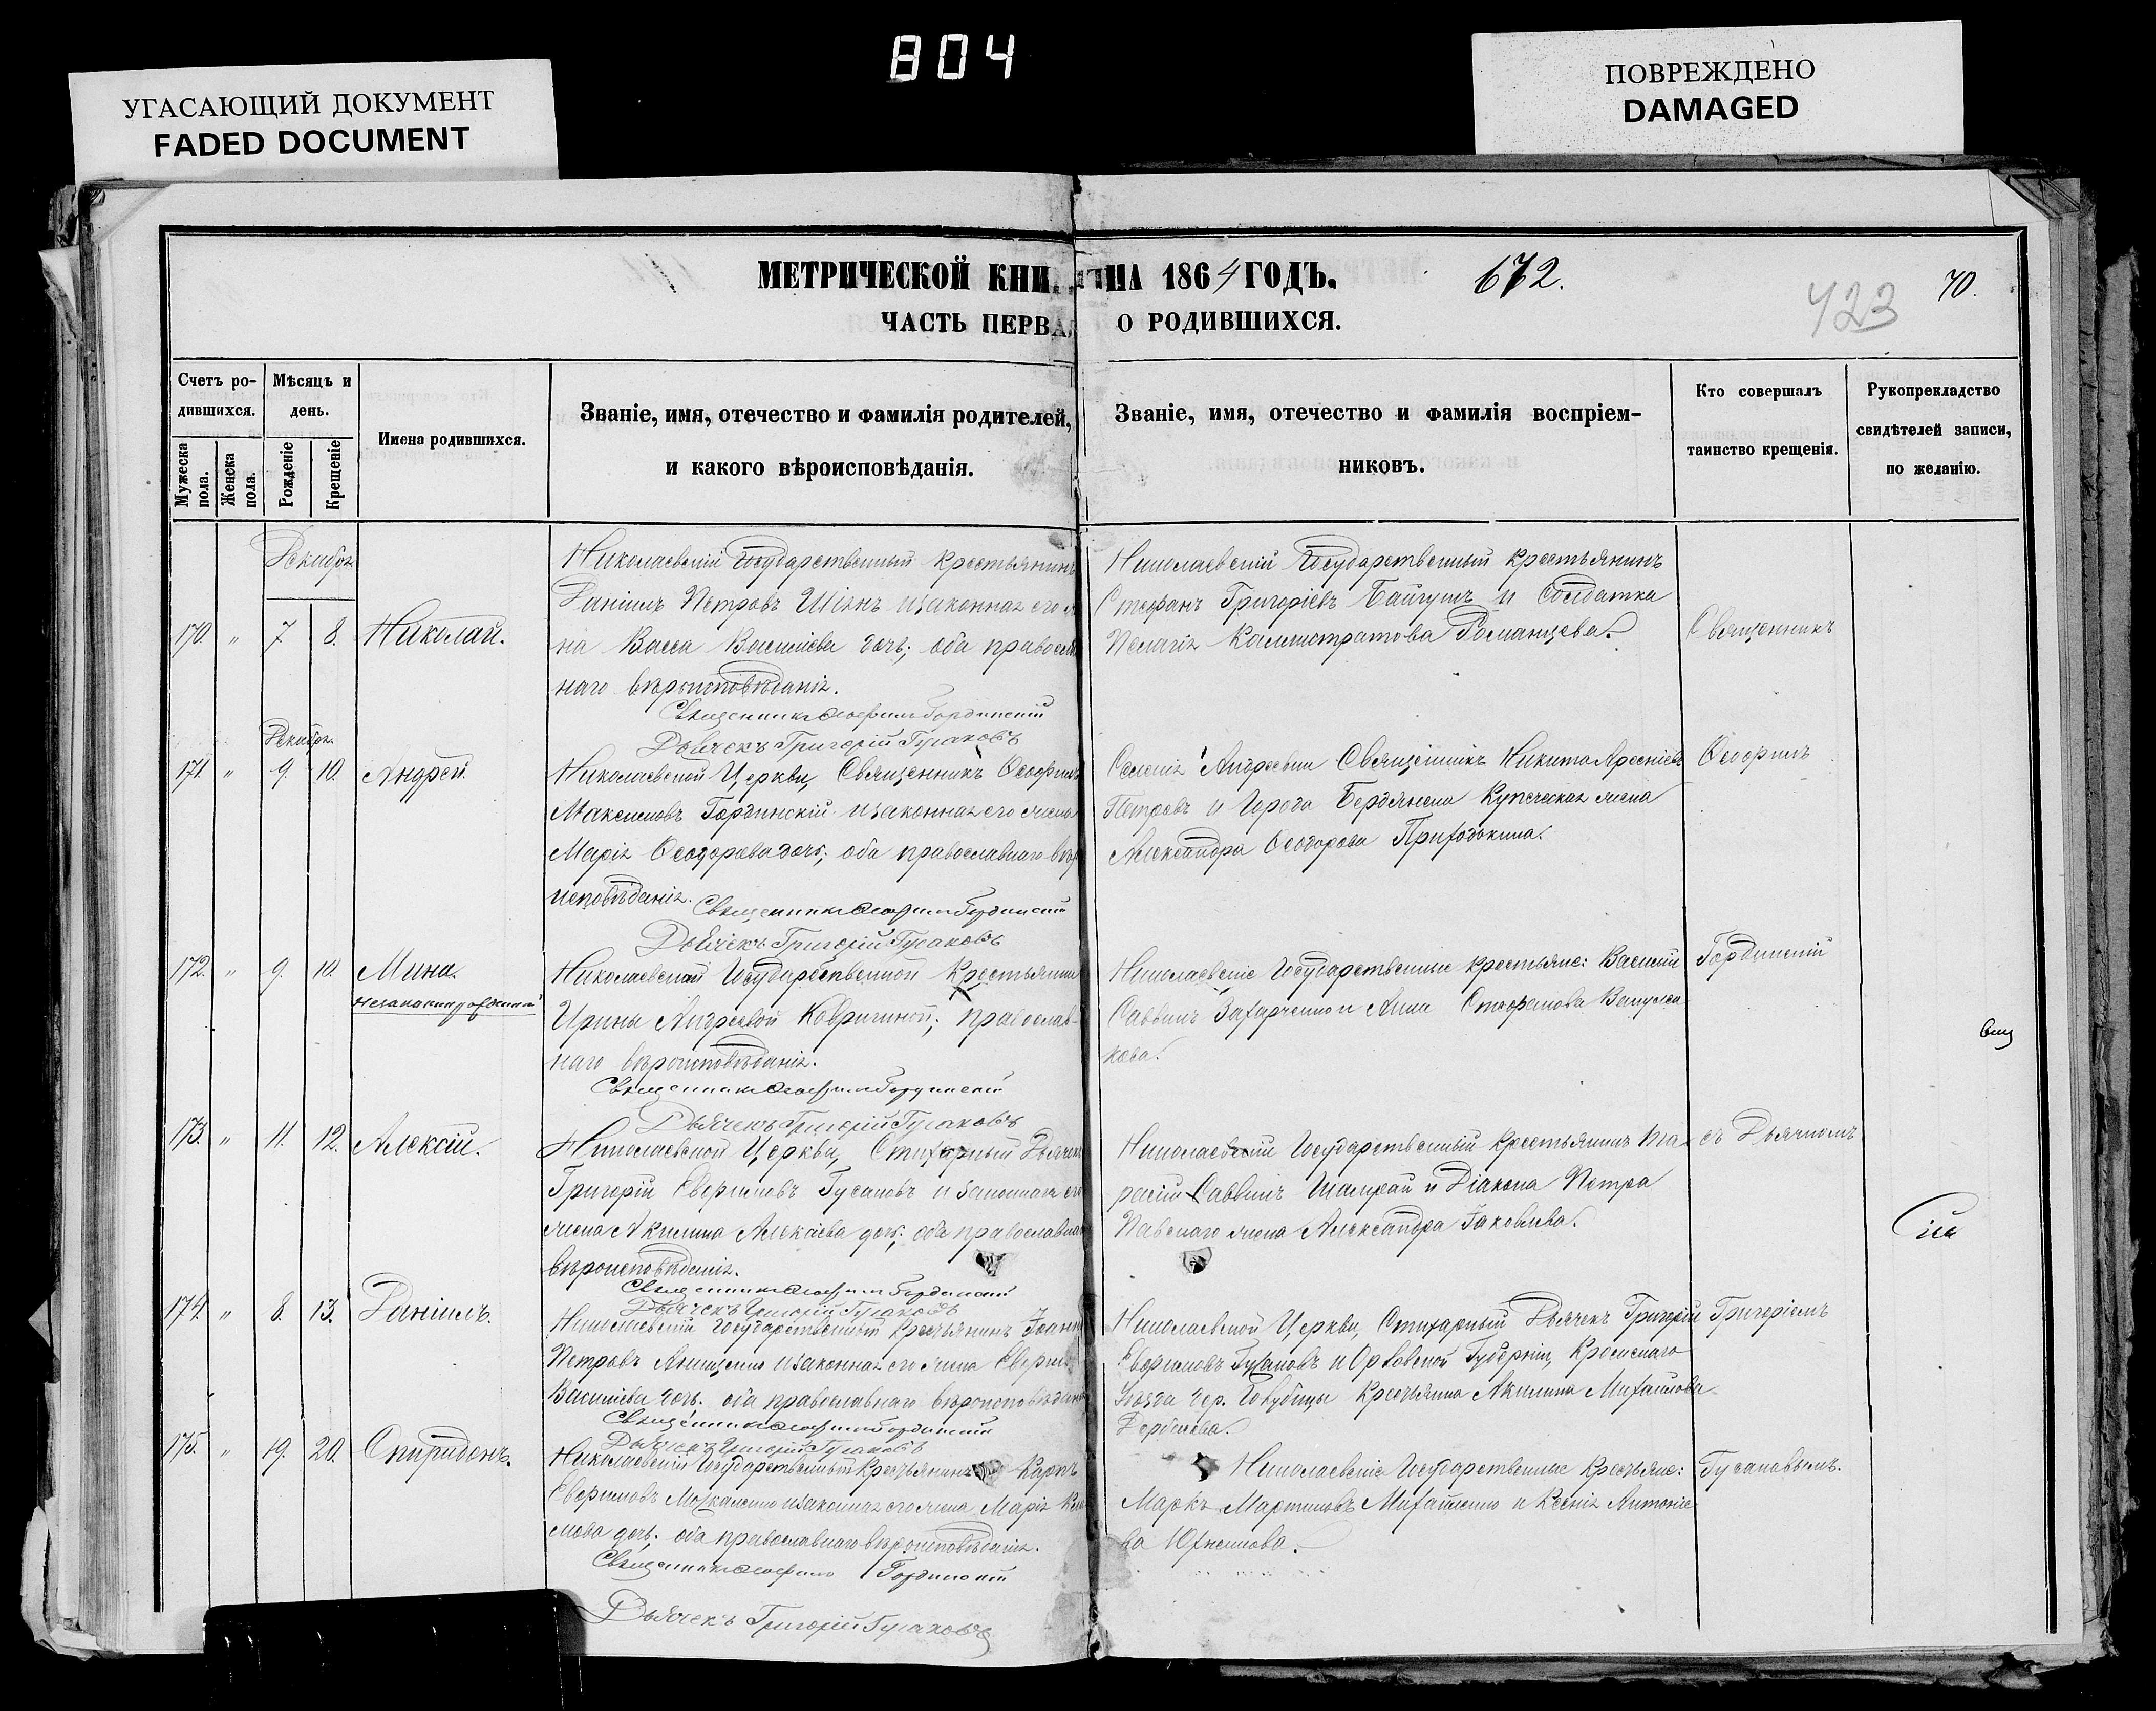 804
УГАСАЮЩИЙ ДОКУМЕНТ
FADED DOCUMENT
ПОВРЕЖДЕНО
DAMAGED
МЕТРИЧЕСКОЙ КНИ НА 1864 ГОДЪ.
672.
423
70.
ЧАСТЬ ПЕРВА О РОДИВШИХСЯ.
Счетъ ро-
дившихся.
Мужеска пола.
Женска пола.
Мѣсяцъ и
день.
Рожденіе
Крещеніе
Имена родившихся.
Званіе, имя, отечество и фамилія родителей,
и какого вѣроисповѣданія.
Званіе, имя, отечество и фамилія воспріем-
никовъ.
Кто совершалъ
таинство крещенія.
Рукоприкладство
свидѣтелей записи,
по желанію.
Декабря
170. " 7 8. Николай.
Николаевскій Государственный крестьянинъ
Даніилъ Петровъ изаконная его
на Васса Василіева дочь; оба правосла
наго вѣроисповѣданія.
Священникъ Ѳеофилъ Гординскій
Дьячекъ Григорій Гусаковъ
Николаевскій Государственный крестьянинъ
Стефанъ Григоріевъ Байгушъ и Солдатка
Пелагія Каллистратова Романцева.
Священникъ
Декабря.
171. " 9. 10. Андрей.
Николаевской Церкви, Священникъ Ѳеофилъ
Максимовъ Гординскій изаконная его жена
Марія Ѳеодорова дочь; оба православнаго вѣро
исповѣданія.
Священникъ Ѳеофилъ Гординскій
Дьячекъ Григорій Гусаковъ
Селенія Андреевки Священникъ Никита Арсеніевъ
Петровъ и Города Бердянска Купеческая жена
Александра Ѳеодорова Приходькина.
Ѳеофилъ
172. " 9. 10. Мина.
незаконнорожденный
Николаевской Государственной Крестьянки
Ирины Андреевой Ковригиной; Православ-
наго вѣроисповѣданія.
Священникъ Ѳеофилъ Гординскій
Дьячекъ Григорій Гусаковъ
Николаевскіе Государственные крестьяне: Василій
Саввинъ Захарченко и Анна Стефанова
кова.
Гординскій
173. " 11. 12. Алексій.
Николаевской Церкви, Стихарный Дьячекъ
Григорій Евфимовъ Гусаковъ и законная его
жена Акилина Алексіева дочь; оба православнаго
вѣроисповѣданія.
Священникъ Ѳеофилъ Гординскій
Дьячекъ Григорій Гусаковъ
Николаевскій Государственный крестьянинъ Та-
расій Саввинъ Шамрай и Діакона Петра
Павскаго жена Александра Іаковлева.
съ Дьячкомъ
174. " 8. 13. Даніилъ.
Николаевскій Государственный крестьянинъ Іоаннъ
Петровъ Анищенко изаконная его жена
Василіева дочь. оба православнаго вѣроисповѣданія
Священникъ Ѳеофилъ Гординскій
Дьячекъ Григорій Гусаковъ
Николаевской Церкви, Стихарный Дьячекъ Григорій
Евфимовъ Гусаковъ и Орловской Губерніи, Кромскаго
Уѣзда дер. Голубицы крестьянка Акилина Михайлова
Григоріемъ
175. " 19. 20. Спиридонъ.
Николаевскій Государственный Крестьянинъ Карпъ
Евфимовъ изаконная его жена Марія
мова дочь. оба православнаго вѣроисповѣданія.
Священникъ Ѳеофилъ Гординскій
Дьячекъ Григорій Гусаковъ
Николаевскіе Государственные Крестьяне:
Маркъ Мартиновъ Михайленко и Ксенія Антоніе
ва Юхненкова.
Гусаковымъ.